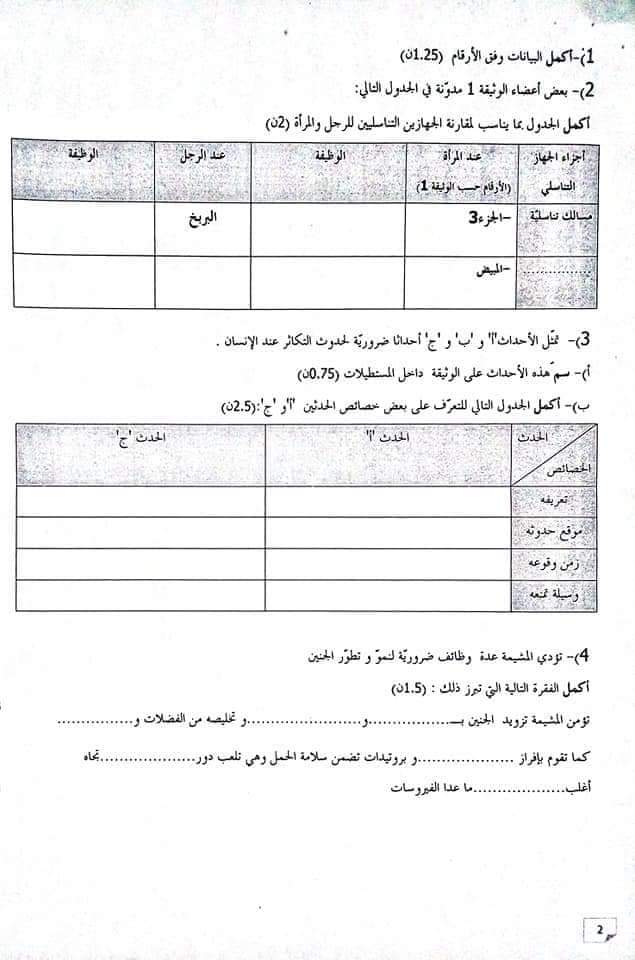 1)-أكمل البيانات وفق الأرقام (1.25ن)
2)- بعض أعضاء الوثيقة 1 مدوّنة في الجدول التالي:
أكمل الجدول بما يناسب لمقارنة الجهازين التناسليين للرجل والمرأة (2ن)
أجزاء الجهاز التناسلي
عند المرأة
(الأرقام حسب الوثيقة 1)
الوظيفة
عند الرجل
الوظيفة
مسالك تناسليّة
-الجزء3
البربخ
...............
-المبيض
3)- تمثّل الأحداث'أ' و 'ب' و 'ج' أحداثا ضروريّة لحدوث التكاثر عند الإنسان .
أ)- سمّ هذه الأحداث على الوثيقة داخل المستطيلات (0.75ن)
ب)- أكمل الجدول التالي للتعرّف على بعض خصائص الحدثين 'أ'و 'ج':(2.5ن)
الحدث
الخصائص
الحدث 'أ'
الحدث 'ج'
تعريفه
موقع حدوثه
زمن وقوعه
وسيلة تمنعه
4)- تؤدي المشيمة عدة وظائف ضروريّة لنموّ و تطوّر الجنين
أكمل الفقرة التالية التي تبرز ذلك : (1.5ن)
تؤمن المشيمة تزويد الجنين بـ..................و......................و تخليصه من الفضلات و....................
كما تقوم بإفراز .....................و بروتيدات تضمن سلامة الحمل وهي تلعب دور.....................تجاه
أغلب.....................ما عدا الفيروسات
2